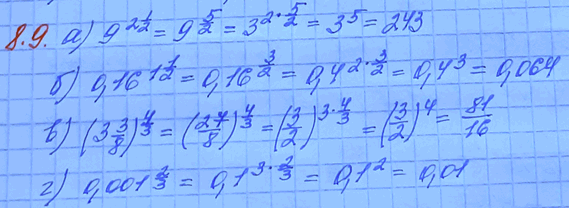 8.9. а) 9^{2 1/2} = 9^{5/2} = 3^{2·5/2} = 3^5 = 243
б) 0,16^{1 1/2} = 0,16^{3/2} = 0,4^{2·3/2} = 0,4^3 = 0,064
в) (3 3/8)^{4/3} = (27/8)^{4/3} = (3/2)^{3·4/3} = (3/2)^4 = 81/16
г) 0,001^{2/3} = 0,1^{3·2/3} = 0,1^2 = 0,01